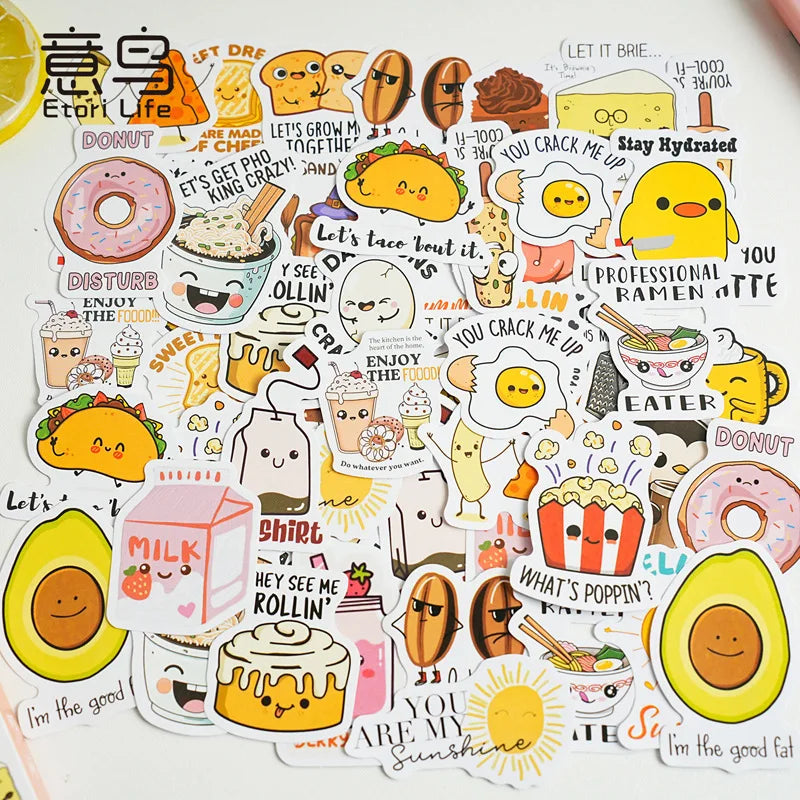 意鸟
Etori Life
LET IT BRIE...
It's Brownie
Time!
COOL-FI
YOU'RE S
EFT DRE
ARE MAD
OF CHEE
LET'S GROW M
TOGETHER
SAND
COOL-FI
DONUT
DISTURB
LET'S GET PHO
KING CRAZY!
Let's taco 'bout it.
YOU CRACK ME UP
Stay Hydrated
YOU
ATTE
PROFESSIONAL
RAMEN
EATER
ENJOY
THE FOOOD!!!
HEY SEE
ROLLIN'
SWEET
CRA
The kitchen is the
heart of the home.
ENJOY
THE FOOOD!
Do whatever you want.
YOU CRACK ME UP
YOU
DONUT
Let's ta
MILK
Shirt
WHAT'S POPPIN'?
HEY SEE ME
ROLLIN'
BERRY
YOU
ARE MY
Sunshine
EATER
I'm the good f
I'm the good fat